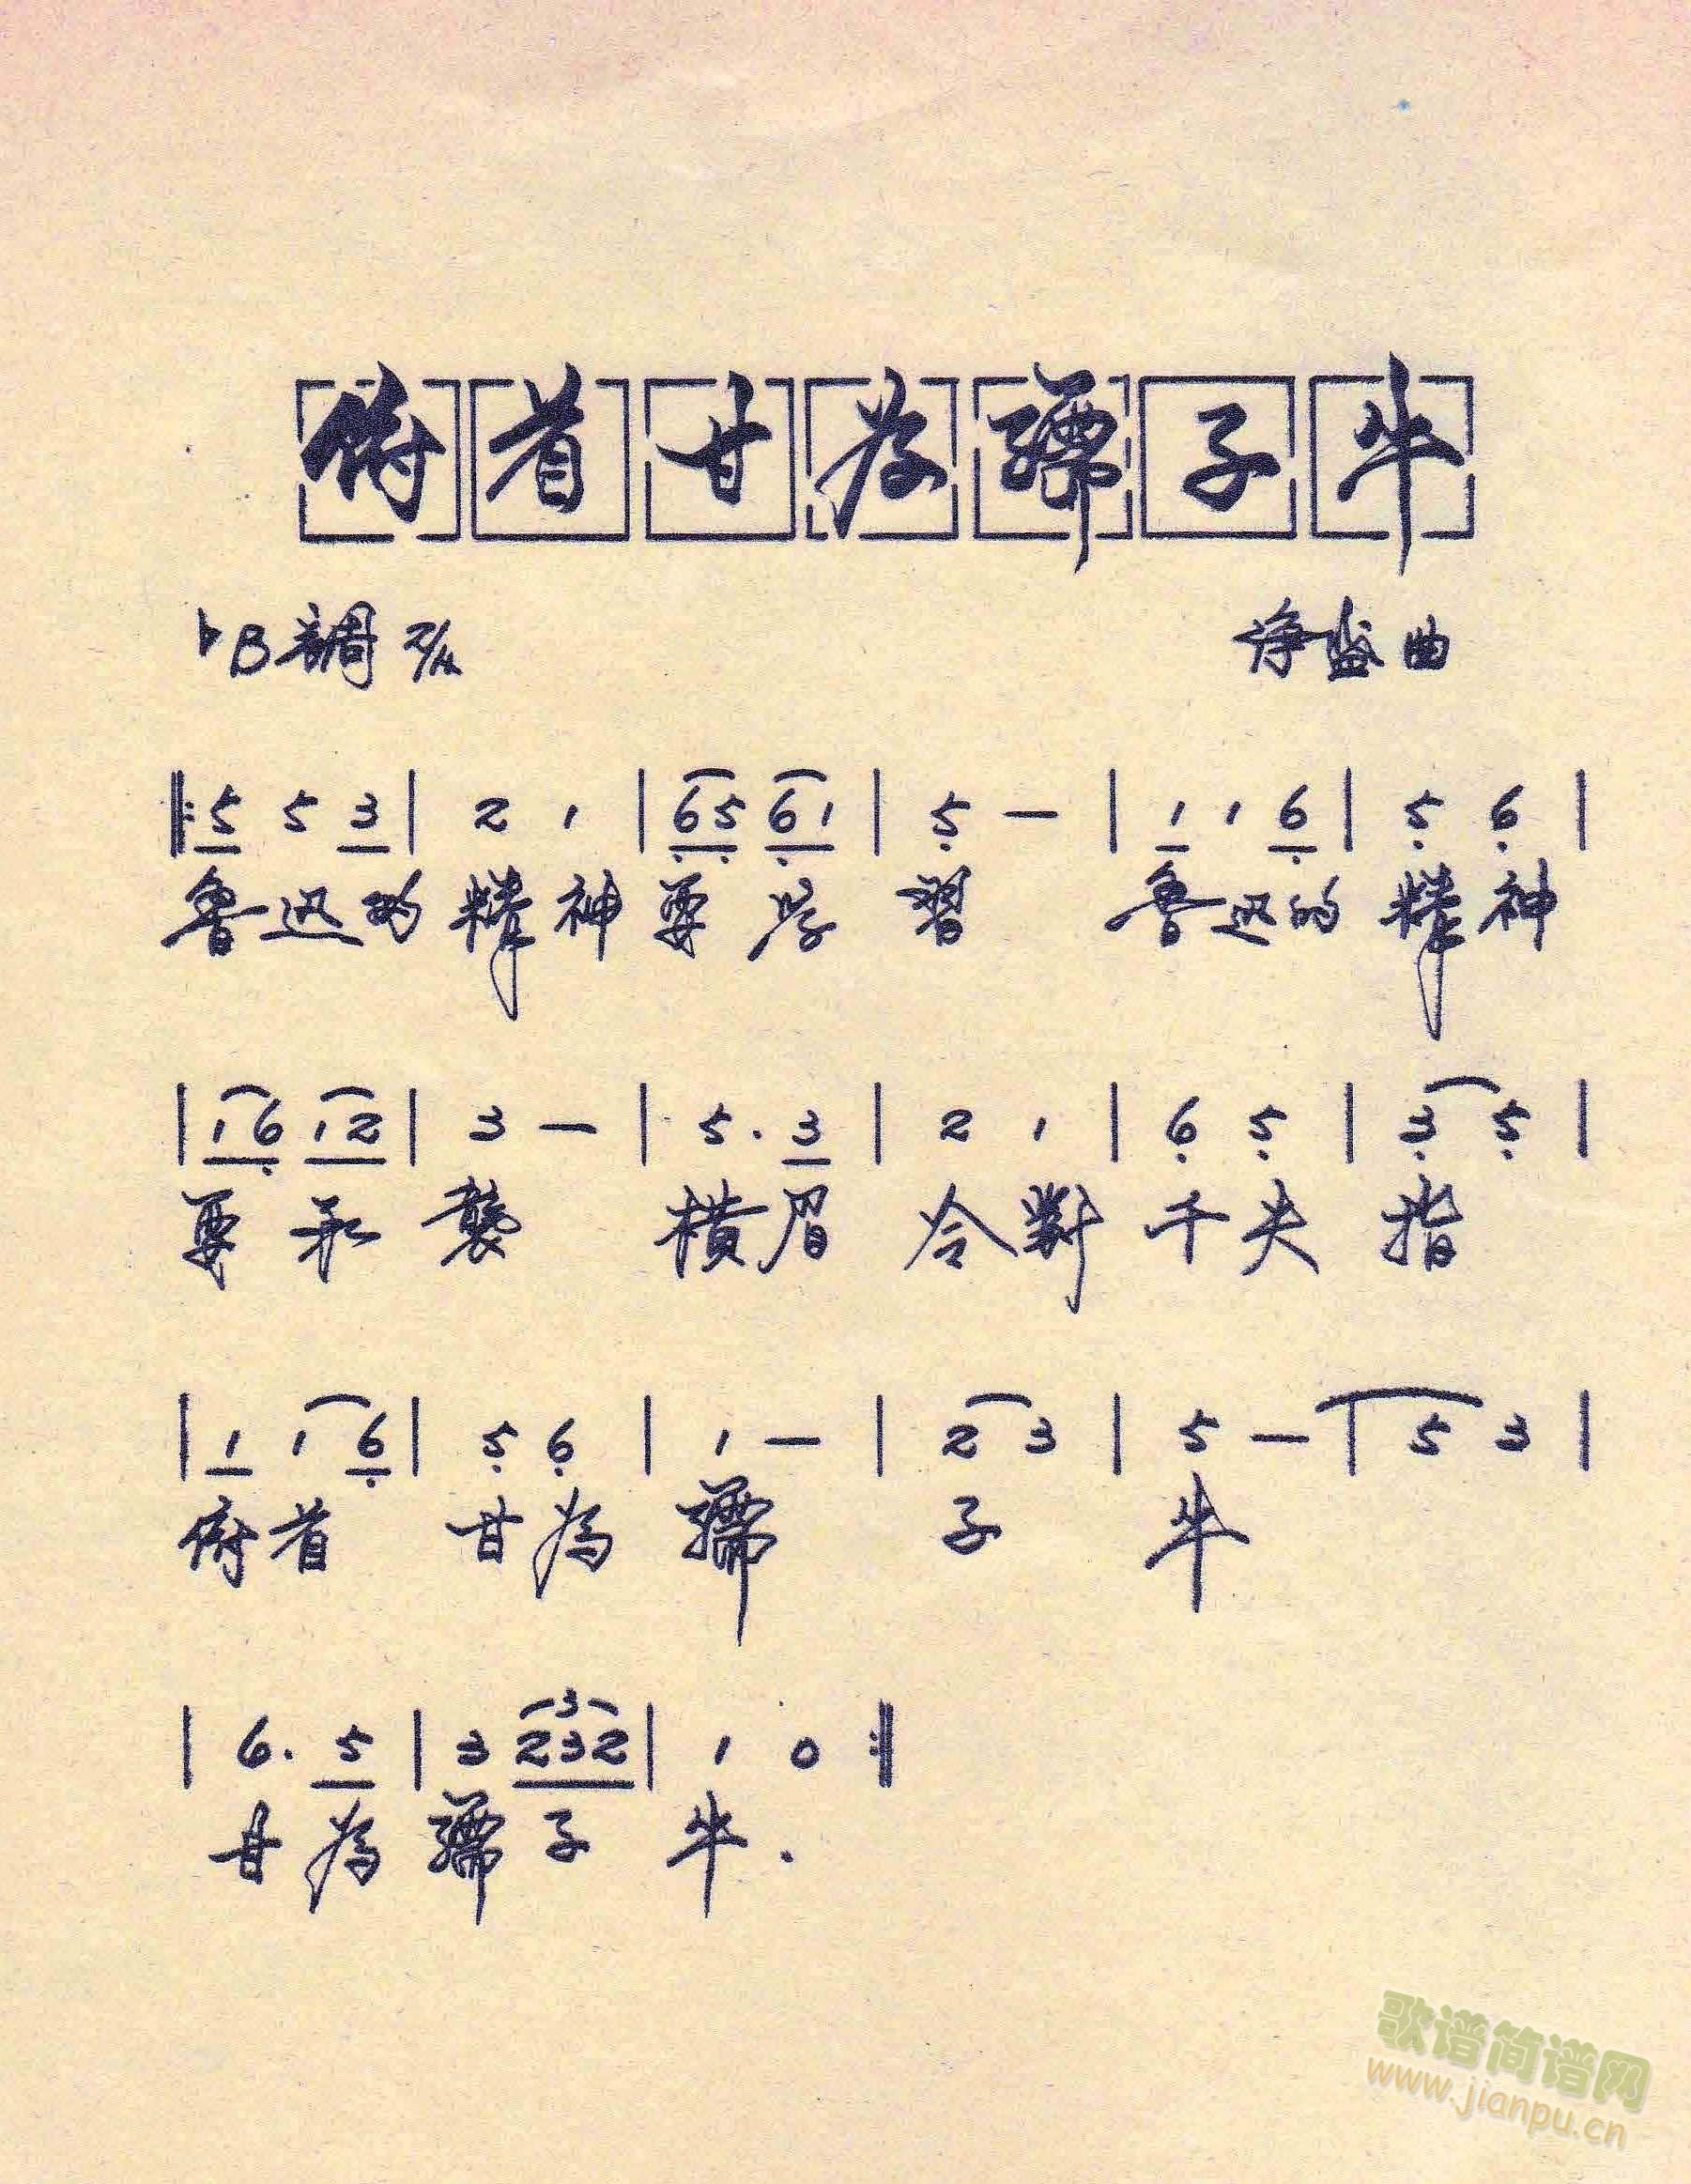 俯首甘为孺子牛
♭B調 2/4
诤盛曲
‖: 5 5 3 | 2 1 | 65 61 | 5 — | 1 1 6 | 5 6 |
魯迅的 精神 要学 習 魯迅的 精神
| 16 12 | 3 — | 5 . 3 | 2 1 | 6 5 | 3 5 |
要承 襲 横眉 冷對 千夫 指
| 1 1 6 | 5 6 | 1 — | 2 3 | 5 — | 5 3 |
俯首 甘為 孺 子 牛
3
| 6 . 5 | 3 232 | 1 0 :‖
甘為 孺子 牛.
歌谱简谱网
www.jianpu.cn